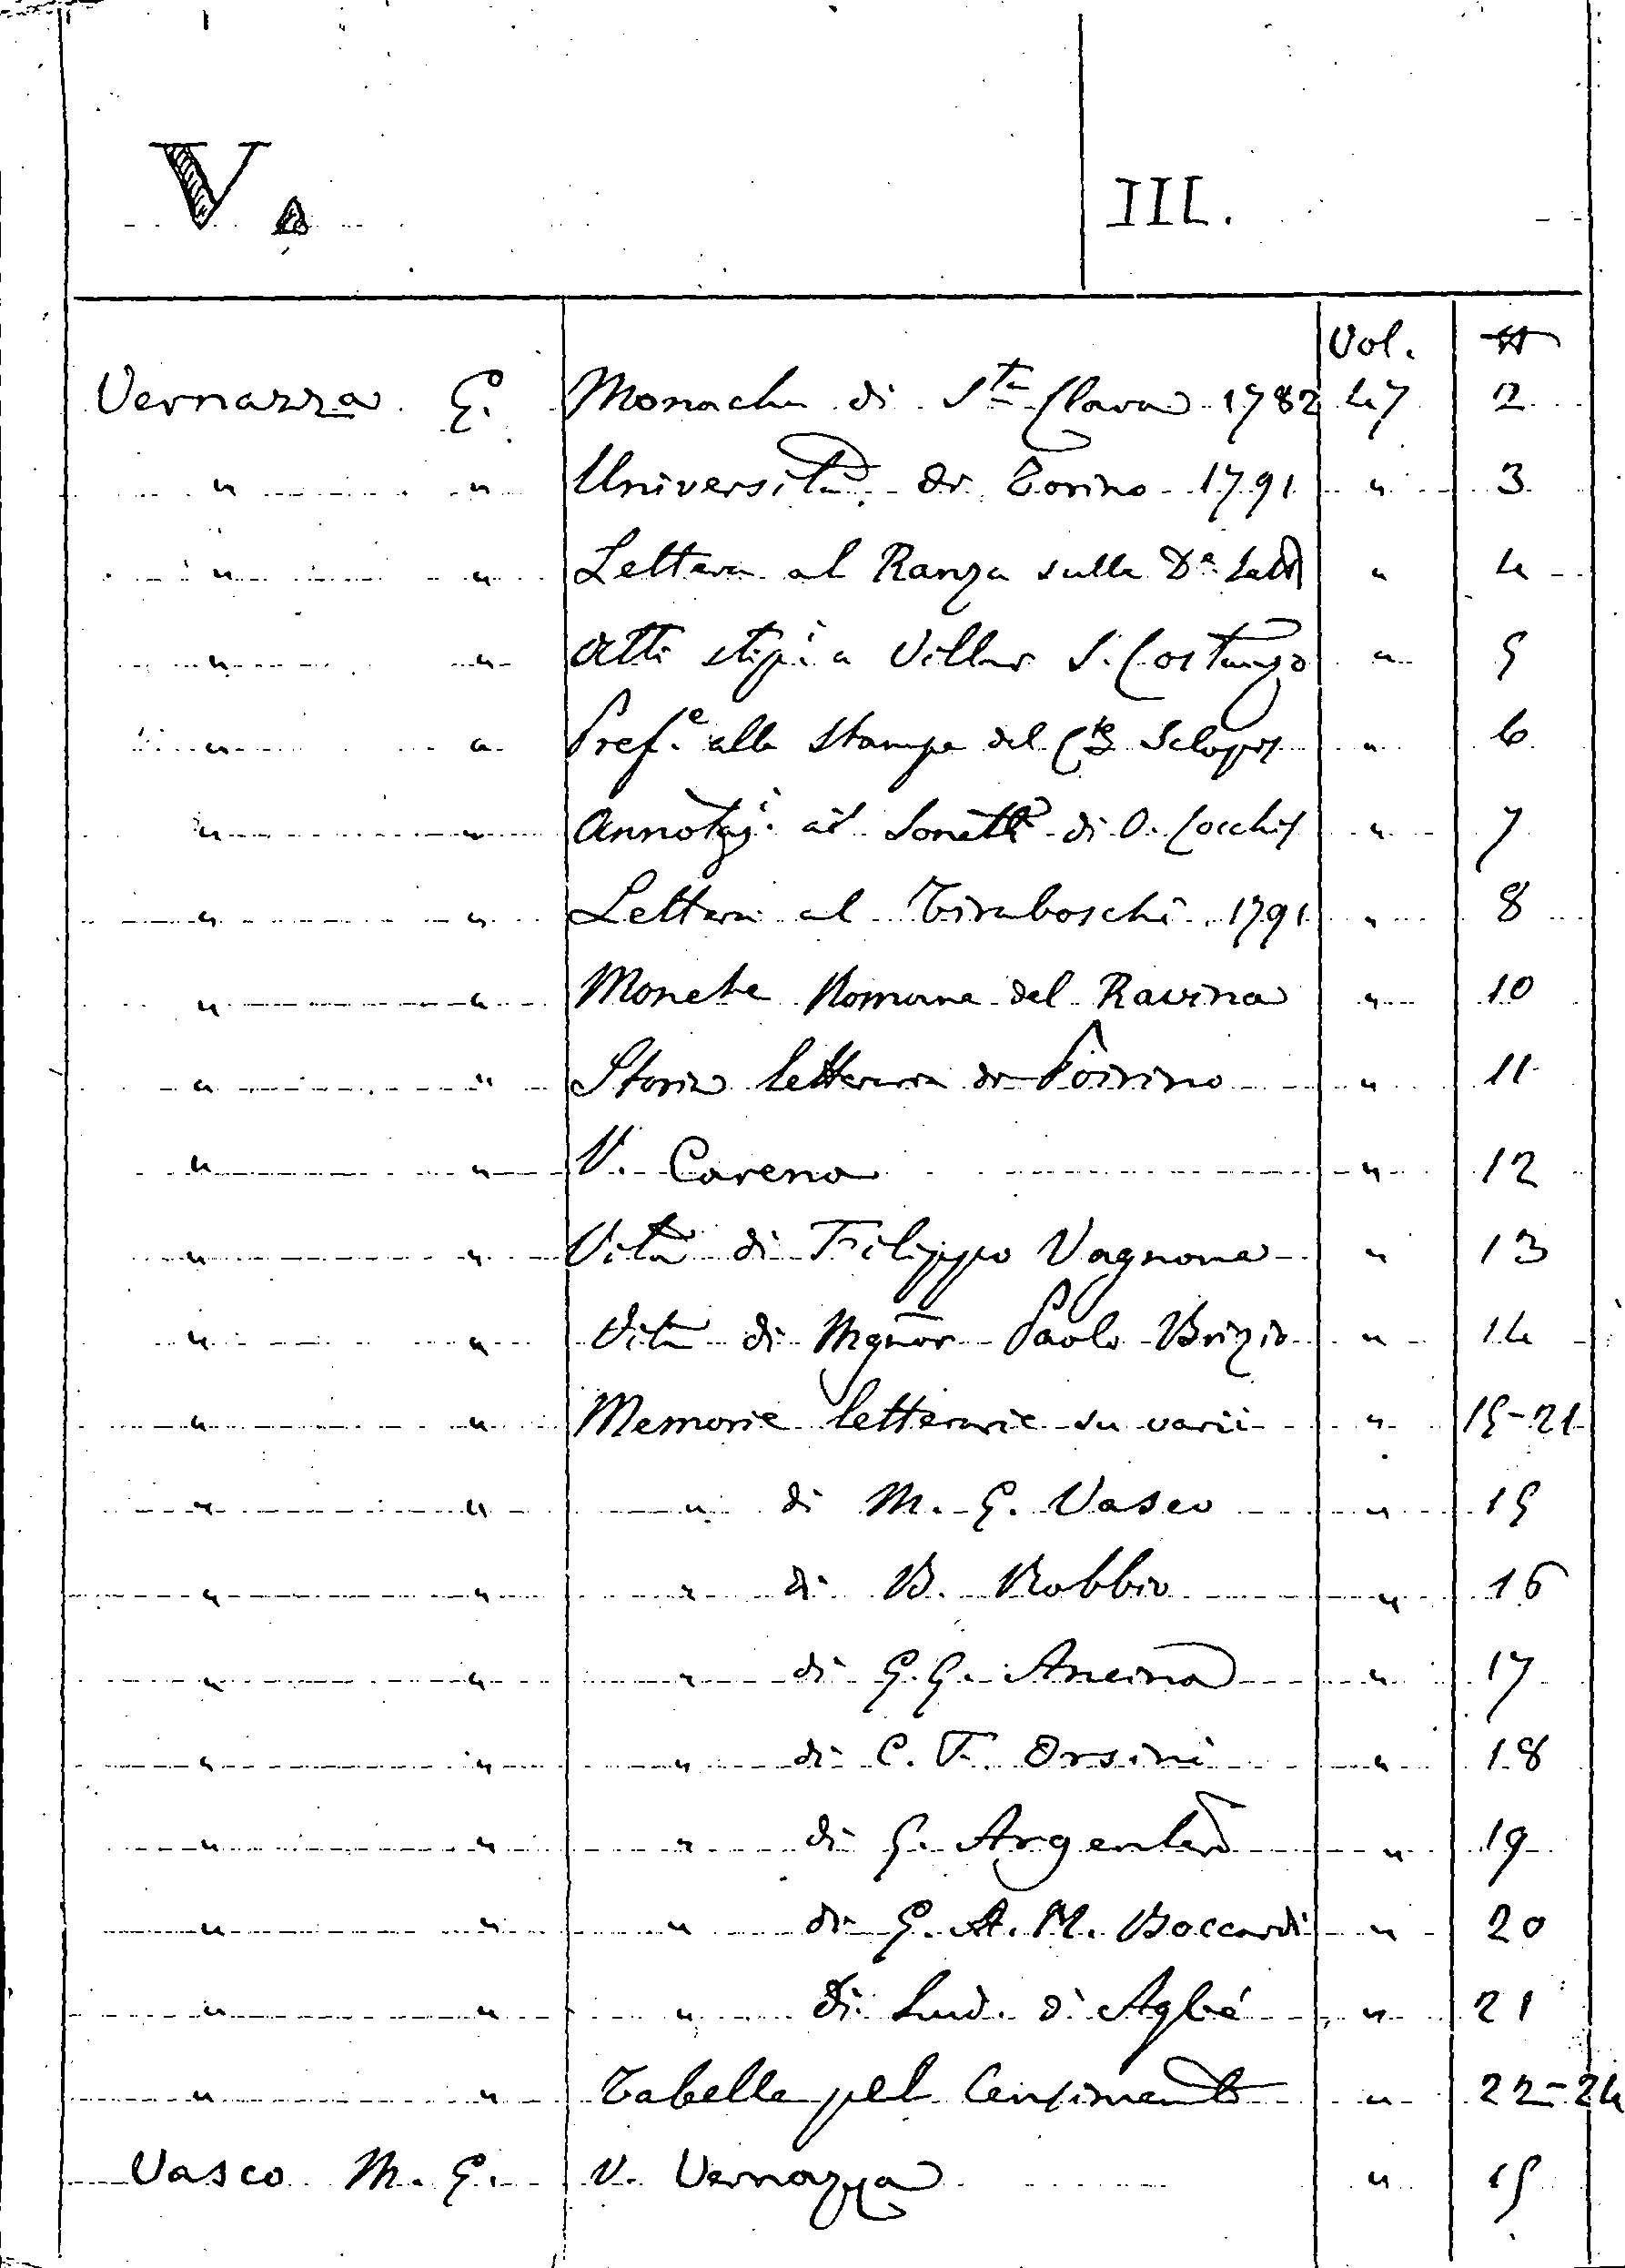 V. III.
Vol. #
Vernazza G. Monache di Sta Clara 1782 47 2
" " Università di Torino 1791 " 3
" " Lettera al Ranza sulla Da " 4
" " Atti stip.i a Villar S. Costanzo " 5
" " Pref.e alle stampe del Cte Sclopis " 6
" " Annotaz.i ai Sonetti di O. Cocchis " 7
" " Lettera al Tiraboschi 1791 " 8
" " Monete Romane del Ravina " 10
" " Storia letteraria di Poirino " 11
" " V. Carena " 12
" " Vita di Filippo Vagnone " 13
" " Vita di Mgnor Paolo Brizio " 14
" " Memorie letterarie su varii " 15-21
" " " di M. G. Vasco " 15
" " " di B. Robbio " 16
" " " di G. G. Ancina " 17
" " " di C. F. Orsini " 18
" " " di G. Argentero " 19
" " " di G. A. M. Boccardi " 20
" " " di Lud. d'Agliè " 21
" " Tabelle pel Censimento " 22-24
Vasco M. G. V. Vernazza " 15